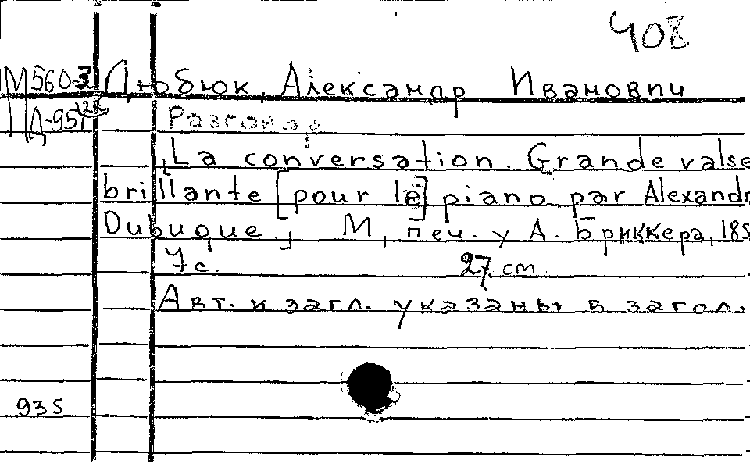 408
М560-3 Дюбюк, Александр Иванович
Д-957
Разговор
La conversation. Grande valse
brillante [pour le] piano par Alexandr
Dubuque. М, печ. у А. Бриккера, 185
7 с. 27 cm.
Авт. и загл. указаны в загол.
935